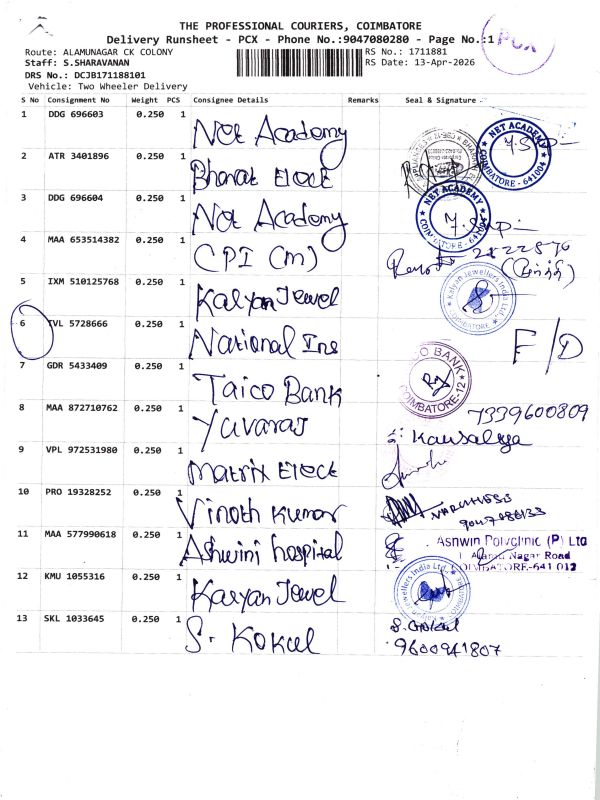 THE PROFESSIONAL COURIERS, COIMBATORE
Delivery Runsheet - PCX - Phone No.:9047080280 - Page No.:1
PCX
Route: ALAMUNAGAR CK COLONY
RS No.: 1711881
Staff: S.SHARAVANAN
RS Date: 13-Apr-2026
DRS No.: DCJB171188101
Vehicle: Two Wheeler Delivery
S No Consignment No Weight PCS Consignee Details Remarks Seal & Signature
1 DDG 696603 0.250 1 Net Academy
NET ACADEMY COIMBATORE - 641004
2 ATR 3401896 0.250 1 Bharat Elect
3 DDG 696604 0.250 1 Net Academy
NET ACADEMY COIMBATORE - 641004
4 MAA 653514382 0.250 1 CPI (m)
5 IXM 510125768 0.250 1 Kalyan Jewel
Kalyan Jewellers India Ltd COIMBATORE
6 TVL 5728666 0.250 1 National Ins F/D
7 GDR 5433409 0.250 1 Taico Bank
CO BANK COIMBATORE-12
8 MAA 872710762 0.250 1 Yuvaraj 7339600809
Kausalya
9 VPL 972531980 0.250 1 Matrix Elect
10 PRO 19328252 0.250 1 Vinoth Kumar
11 MAA 577990618 0.250 1 Ashwini hospital
Ashwin Polyclinic (P) Ltd
1 Alamu Nagar Road
COIMBATORE-641 012
12 KMU 1055316 0.250 1 Kalyan Jewel
13 SKL 1033645 0.250 1 S. Kokul S. Gokul
9600941807